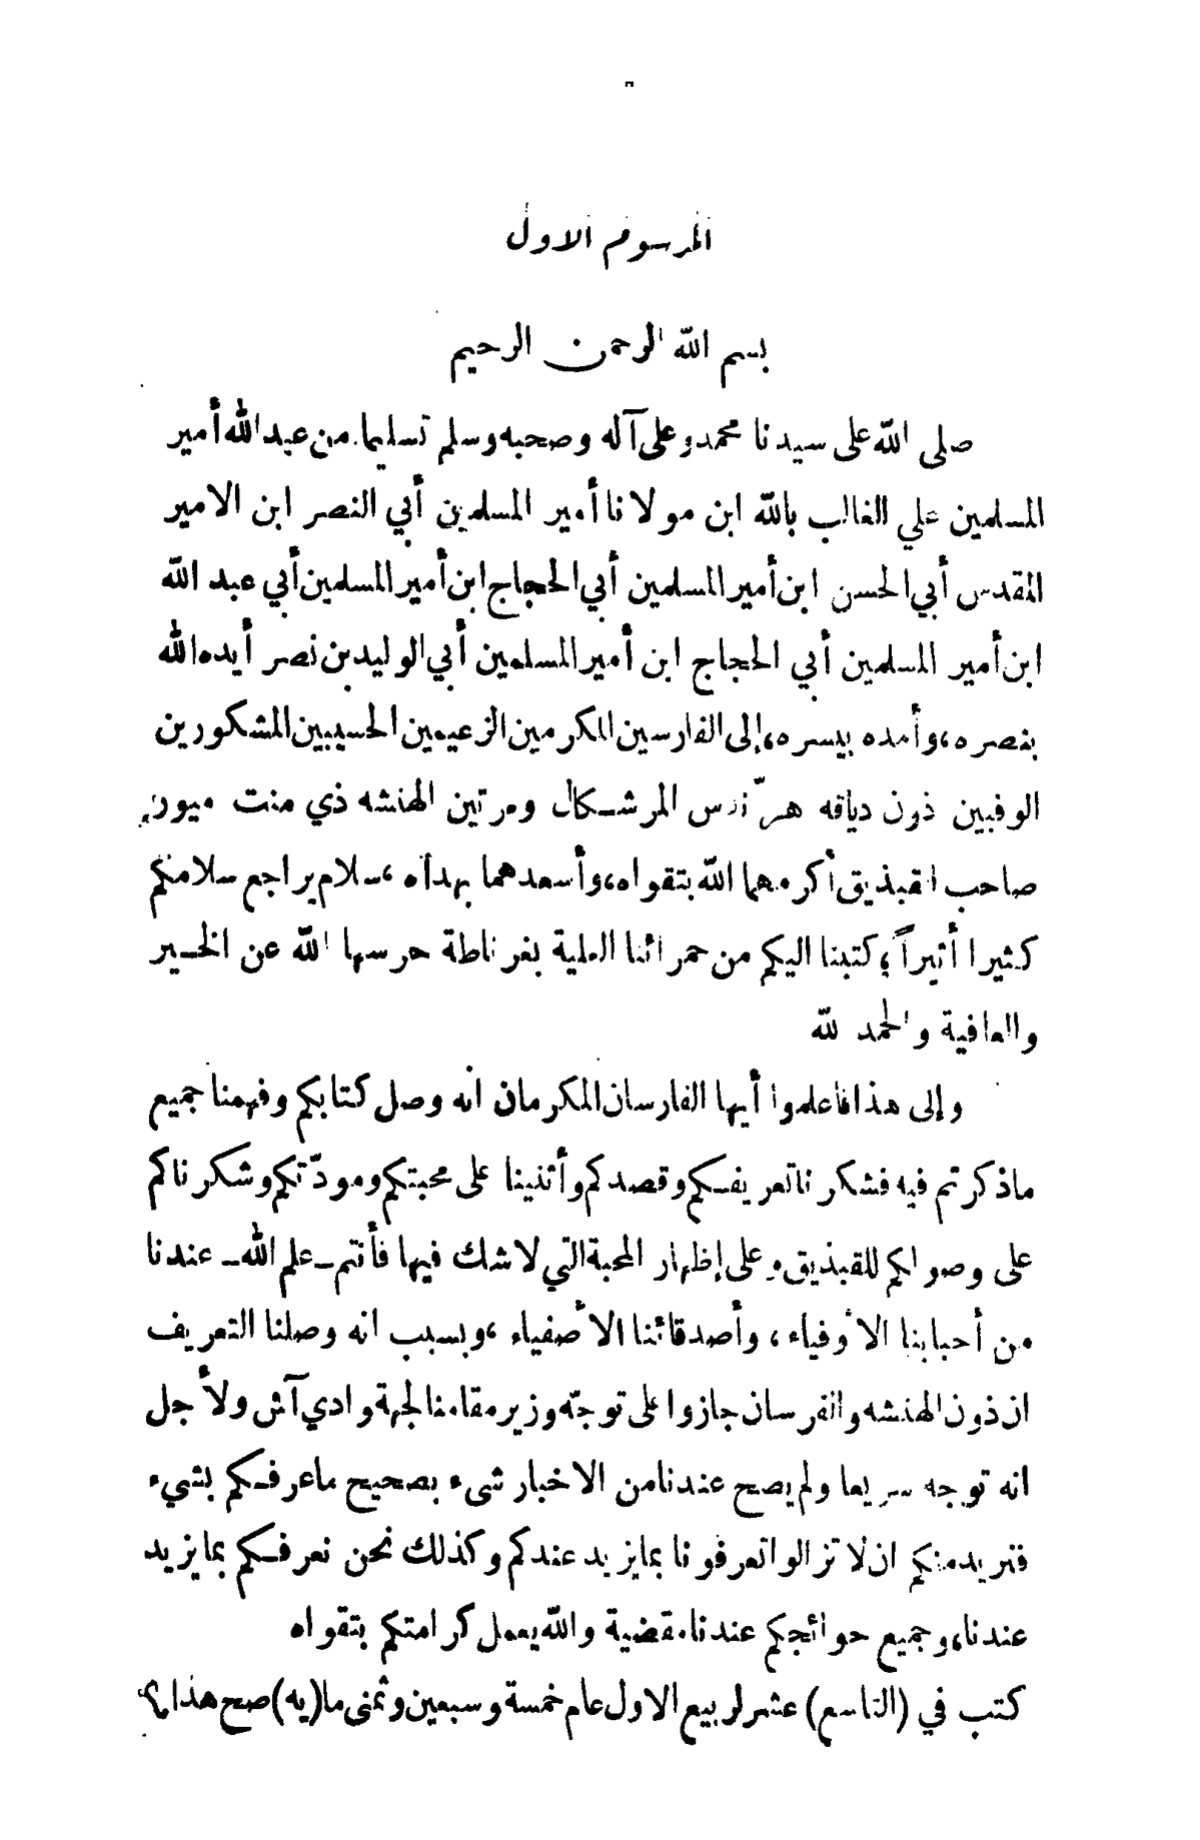 المرسوم الاول
بسم الله الرحمن الرحيم
صلى الله على سيدنا محمد وعلى آله وصحبه وسلم تسليما. من عبد الله أمير
المسلمين علي الغالب بالله ابن مولانا أمير المسلمين أبي النصر ابن الامير
المقدس أبي الحسن ابن أمير المسلمين أبي الحجاج ابن أمير المسلمين أبي عبد الله
ابن أمير المسلمين أبي الحجاج ابن أمير المسلمين أبي الوليد بن نصر أيده الله
بنصره، وأمده بيسره، إلى الفارسين المكرمين الزعيمين الحسيبين المشكورين
الوفيين ذون دياقه هرّندس المرشكال ومرتين الهنشه ذي منت ميور،
صاحب القبذيق أكرمهما الله بتقواه، وأسعدهما بهداه، سلام يراجع سلامكم
كثيرا أثيراً؛ كتبنا اليكم من حمرائنا العلية بغرناطة حرسها الله عن الخير
والعافية والحمد لله
وإلى هذا فاعلموا أيها الفارسان المكرمان انه وصل كتابكم وفهمنا جميع
ماذكرتم فيه فشكرنا تعريفكم وقصدكم وأثنينا على محبتكم ومودّتكم وشكرناكم
على وصولكم للقبذيق وعلى إظهار المحبة التي لاشك فيها فأنتم ــ علم الله ــ عندنا
من أحبابنا الأوفياء، وأصدقائنا الأصفياء، وبسبب انه وصلنا التعريف
ان ذون الهنشه والفرسان جازوا على توجّه وزير مقامنا لجهة وادي آش ولأجل
انه توجه سريعا ولم يصح عندنا من الاخبار شىء بصحيح ماعرفكم بشيء
فنريد منكم ان لا تزالوا تعرفونا بما يزيد عندكم وكذلك نحن نعرفكم بما يزيد
عندنا، وجميع حوائجكم عندنا مقضية والله يعمل كرامتكم بتقواه
كتب في (التاسع) عشر لربيع الاول عام خمسة وسبعين وثمنى ما(يه) صح هذا؟